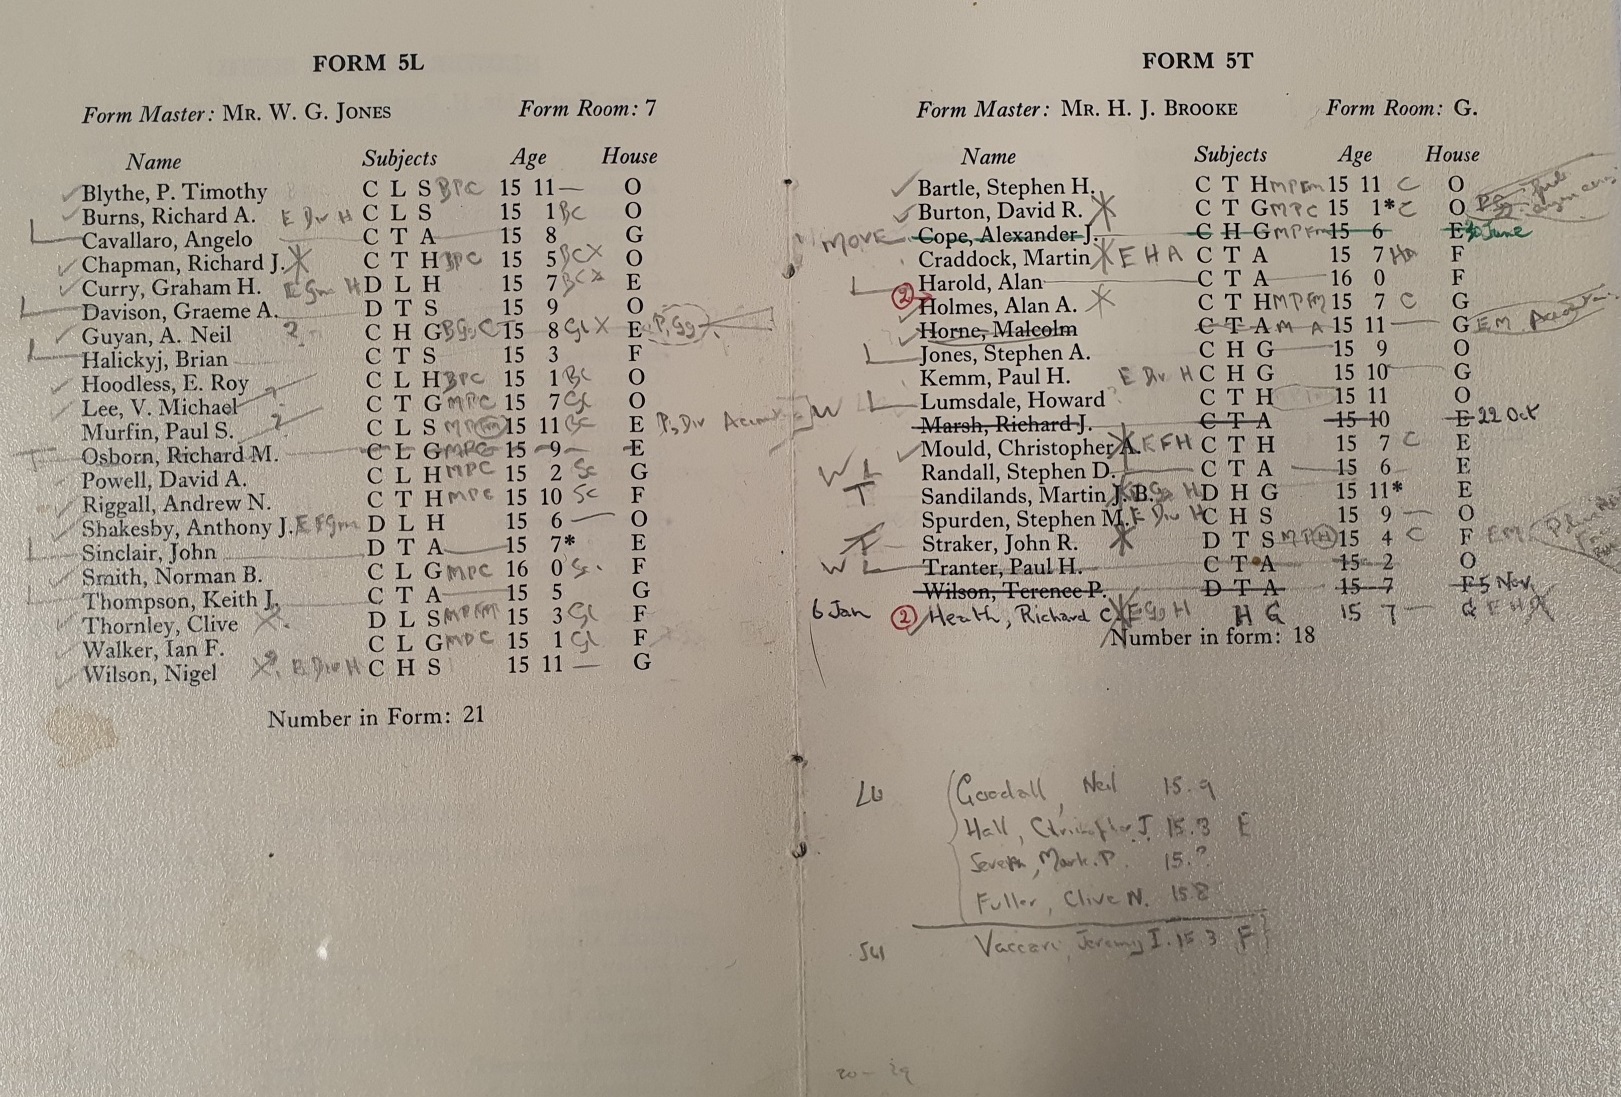 FORM 5L
Form Master: MR. W. G. JONES Form Room: 7
Name Subjects Age House
Blythe, P. Timothy C L S BPC 15 11 — O
Burns, Richard A. E Div H C L S 15 1 BC O
Cavallaro, Angelo C T A 15 8 G
Chapman, Richard J. C T H BPC 15 5 BCX O
Curry, Graham H. E Gm H D L H 15 7 BCX E
Davison, Graeme A. D T S 15 9 O
Guyan, A. Neil ? C H G 15 8 Gl X E P, Gg
Halickyj, Brian C T S 15 3 F
Hoodless, E. Roy C L H BPC 15 1 BC O
Lee, V. Michael ? C T G MPC 15 7 Gl O
Murfin, Paul S. ? C L S 15 11 BC E P, Div
Osborn, Richard M. C L G MPC 15 9 E
Powell, David A. C L H MPC 15 2 Sc G
Riggall, Andrew N. C T H MPC 15 10 Sc F
Shakesby, Anthony J. E F Gm D L H 15 6 — O
Sinclair, John D T A 15 7* E
Smith, Norman B. C L G MPC 16 0 Sc. F
Thompson, Keith J. C T A 15 5 G
Thornley, Clive X? D L S MPFM 15 3 Gl F
Walker, Ian F. C L G MPC 15 1 Gl F
Wilson, Nigel X? E Div H C H S 15 11 — G
Number in Form: 21
FORM 5T
Form Master: MR. H. J. BROOKE Form Room: G.
Name Subjects Age House
Bartle, Stephen H. C T H MPFm 15 11 C O
Burton, David R. C T G MPC 15 1* C O
MOVE Cope, Alexander J. C H G MPFm 15 6 E 30 June
Craddock, Martin E H A C T A 15 7 HA F
Harold, Alan C T A 16 0 F
2 Holmes, Alan A. C T H MPFM 15 7 C G
Horne, Malcolm C T A M A 15 11 G EM
Jones, Stephen A. C H G 15 9 O
Kemm, Paul H. E Div H C H G 15 10 G
W Lumsdale, Howard C T H 15 11 O
Marsh, Richard J. C T A 15 10 E 22 Oct
Mould, Christopher A. E F H C T H 15 7 C E
W L Randall, Stephen D. C T A 15 6 E
T Sandilands, Martin J. B. H D H G 15 11* E
Spurden, Stephen M. E Div H C H S 15 9 — O
Straker, John R. D T S MP(H) 15 4 C F EM
W L Tranter, Paul H. C T A 15 2 O
Wilson, Terence P. D T A 15 7 F 5 Nov
6 Jan 2 Heath, Richard C E Gg H H G 15 7 — G E H
Number in form: 18
LU Goodall, Neil 15.9
Hall, Christopher J. 15.3 E
Mark. P. 15.?
Fuller, Clive N. 15 8
5U Vaccari, Jeremy I. 15 3 F
20 - 29